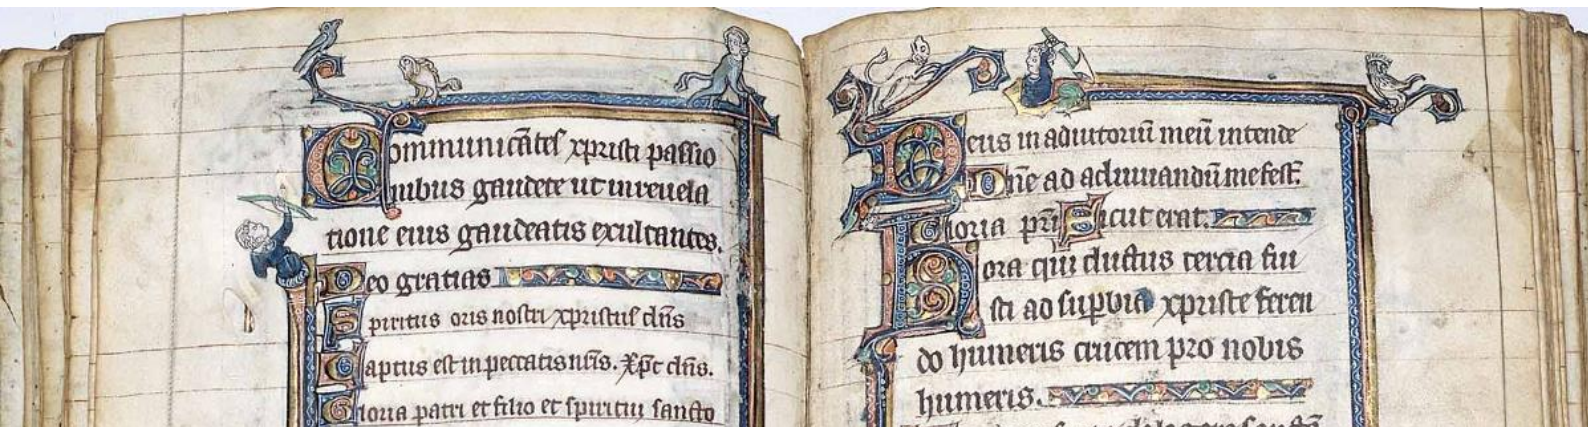 Communicãtes xpristi passio
nibus gaudete ut in revela
tione eius gaudeatis exultantes.
Deo gratias
Spiritus oris nostri xpristus dñs
Captus est in peccatis nr̃is. Xp̃c dñs.
Gloria patri et filio et spiritui sancto
Deus in adiutoriũ meũ intende
Dñe ad adiuvandũ me fest̃.
Gloria pr̃i Sicut erat.
Hora qui ductus tercia fui
sti ad supplicia xpriste feren
do humeris crucem pro nobis
humeris.